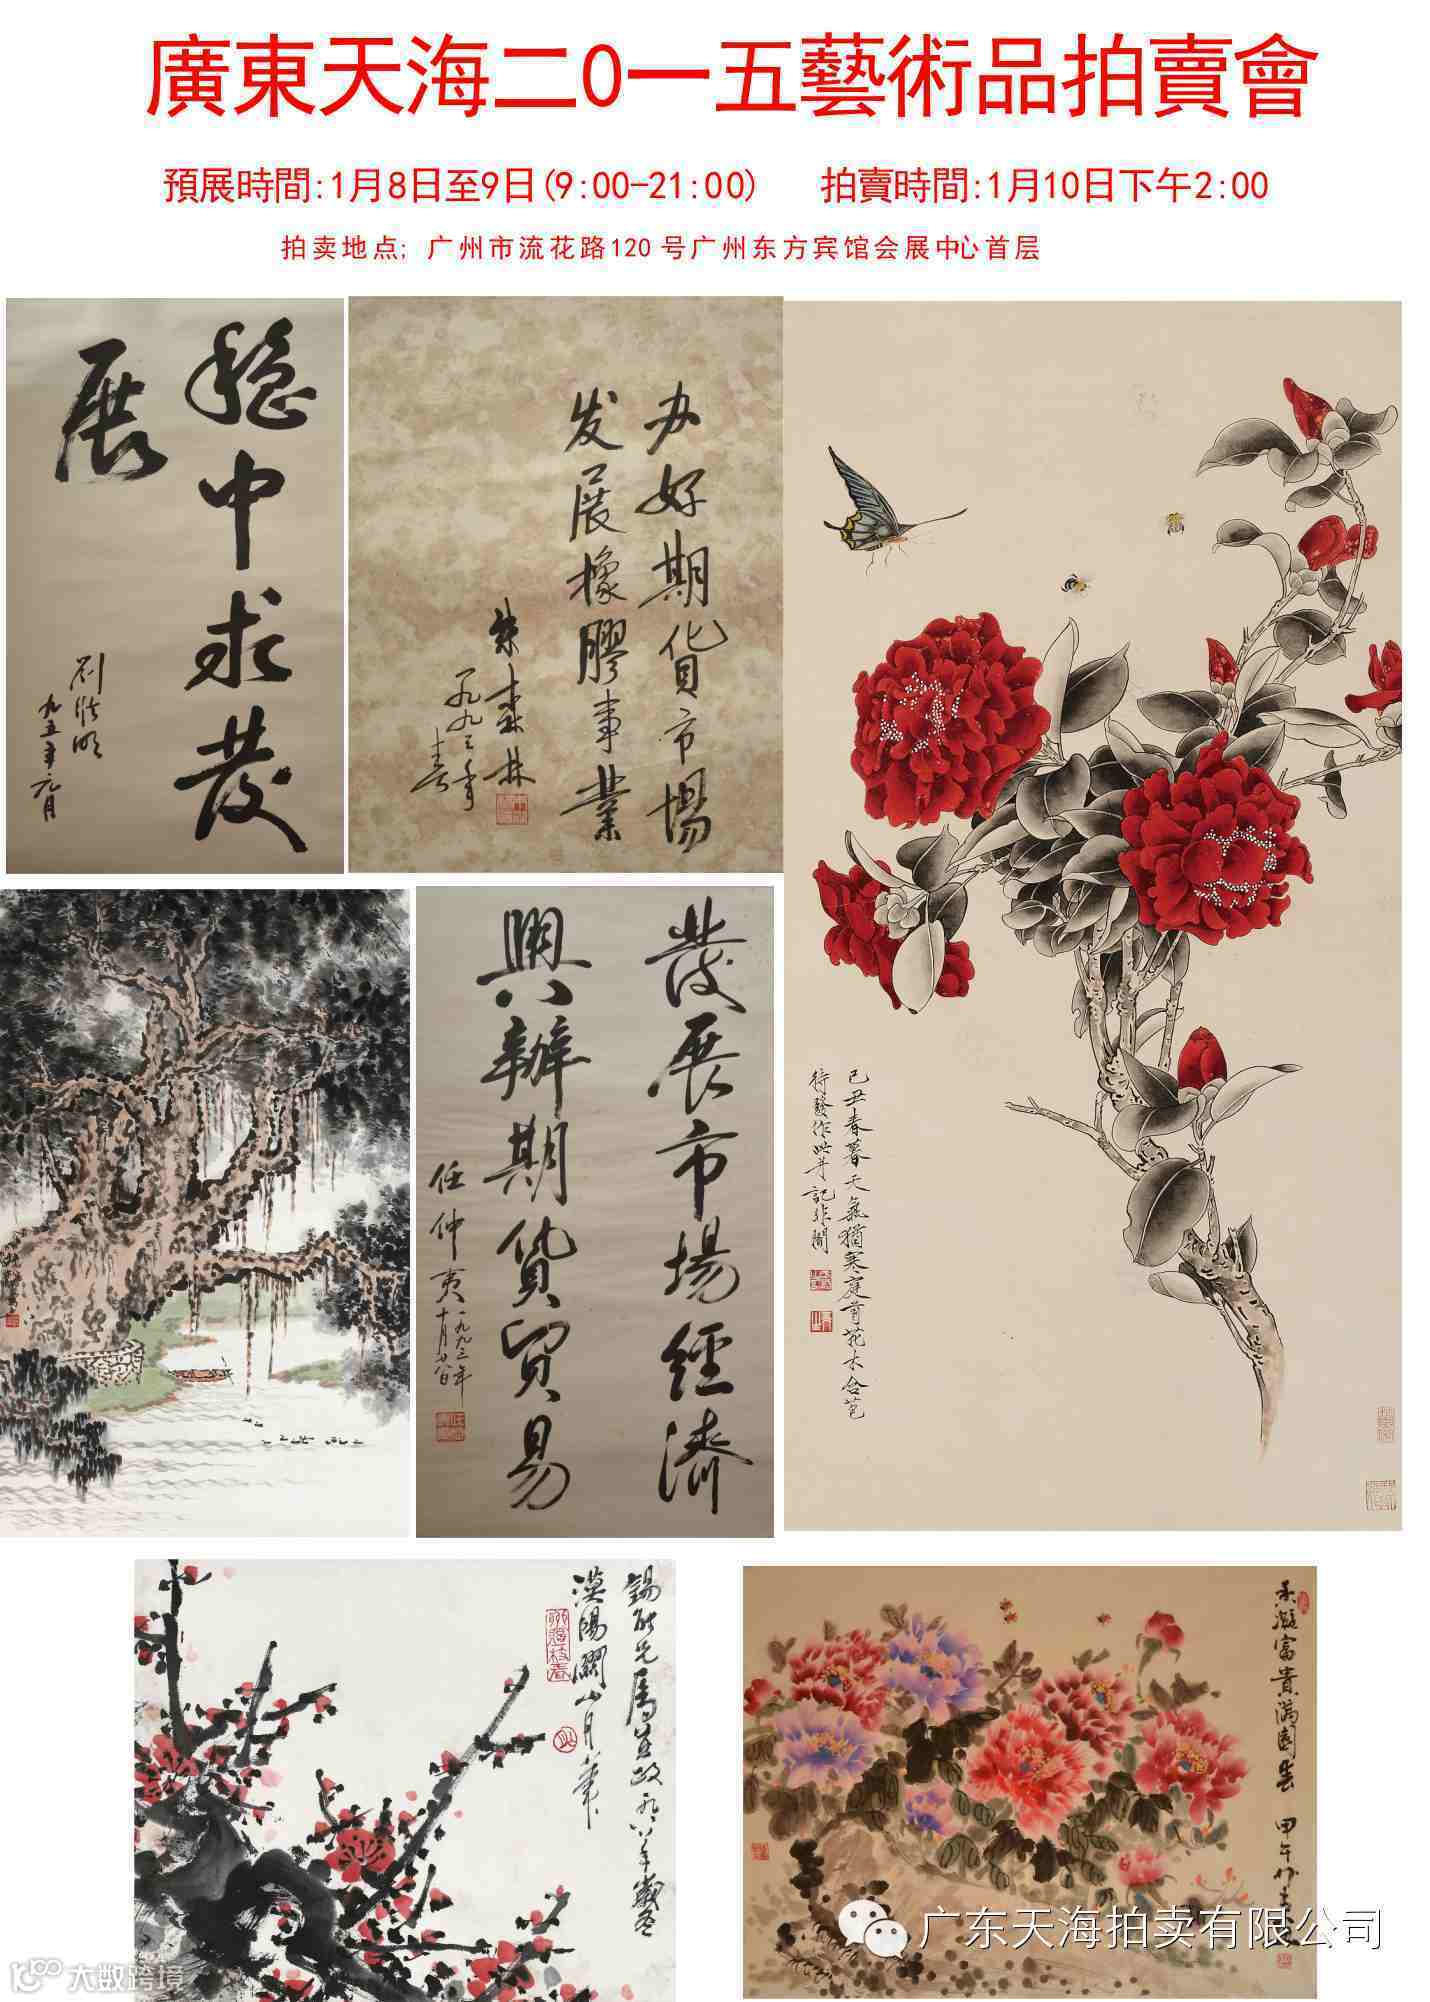 廣東天海二0一五藝術品拍賣會
預展時間:1月8日至9日(9:00-21:00) 拍賣時間:1月10日下午2:00
拍卖地点; 广州市流花路120号广州东方宾馆会展中心首层
稳中求發
展
九五年元月
办好期货市場
发展橡膠事業
朱森林
一九九三年
春
發展市場經濟
興辦期貨貿易
任仲夷
一九九三年
十月
己丑春暮天氣猶寒庭前花木含苞
待發作此并記非闇
漠陽關山月筆
富貴滿園春 甲午
广东天海拍卖有限公司
大数跨境